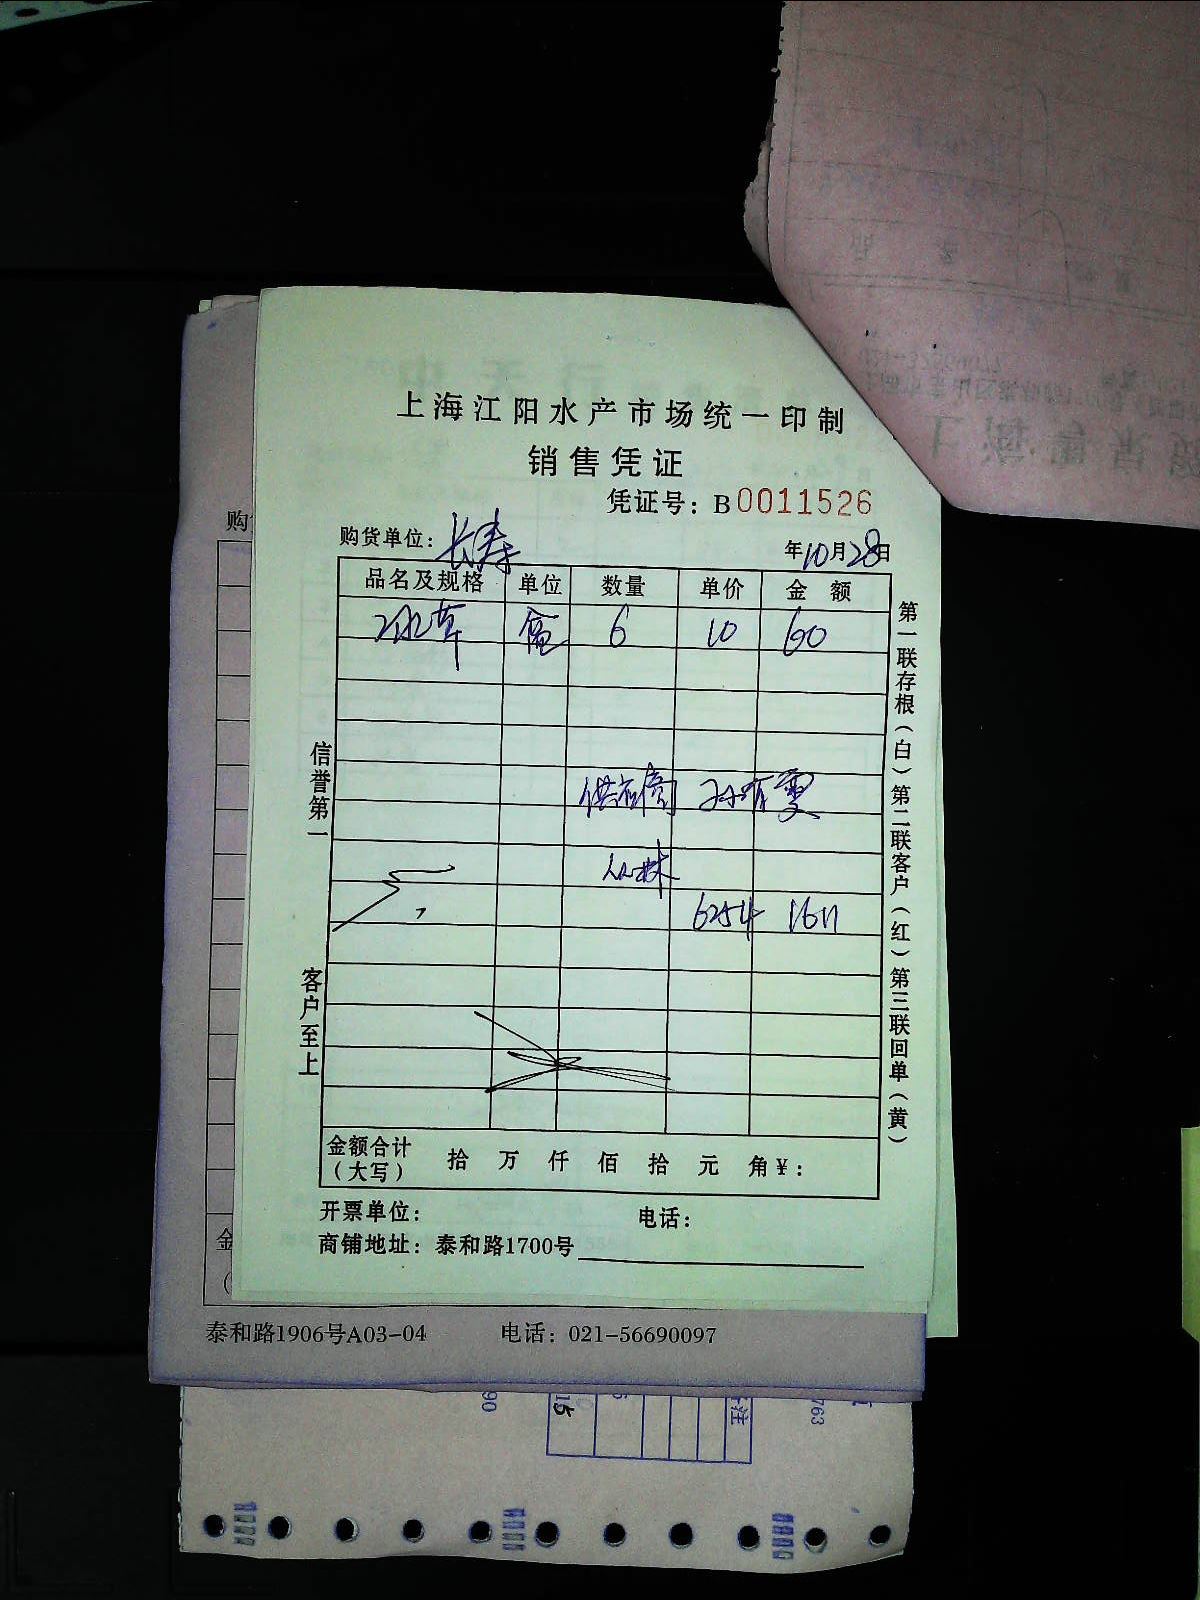 上海江阳水产市场统一印制
销售凭证
凭证号：B0011526
购货单位：长寿
年10月28日
品名及规格 单位 数量 单价 金额
冰草 盒 6 10 60
供应商
丛林
6254 1611
信誉第一
客户至上
第一联存根（白）第二联客户（红）第三联回单（黄）
金额合计（大写） 拾 万 仟 佰 拾 元 角 ¥：
开票单位： 电话：
商铺地址：泰和路1700号
购
金
泰和路1906号A03-04 电话：021-56690097
90
15
注
763